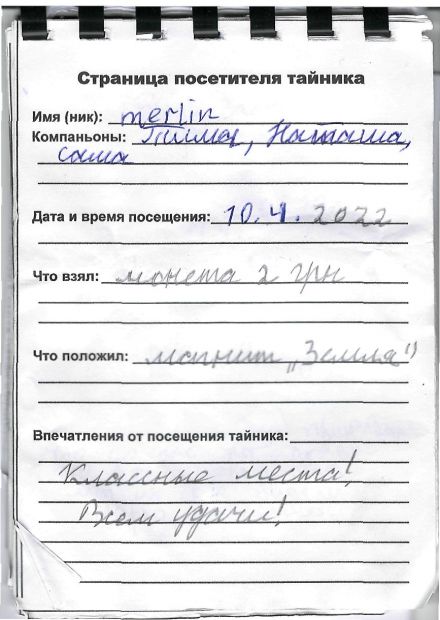 Страница посетителя тайника
Имя (ник): merlin
Компаньоны: Тима, Наташа,
саша
Дата и время посещения: 10.4.2022
Что взял: монета 2 грн
Что положил: магнит „Земля"
Впечатления от посещения тайника:
Классные места!
Всем удачи!